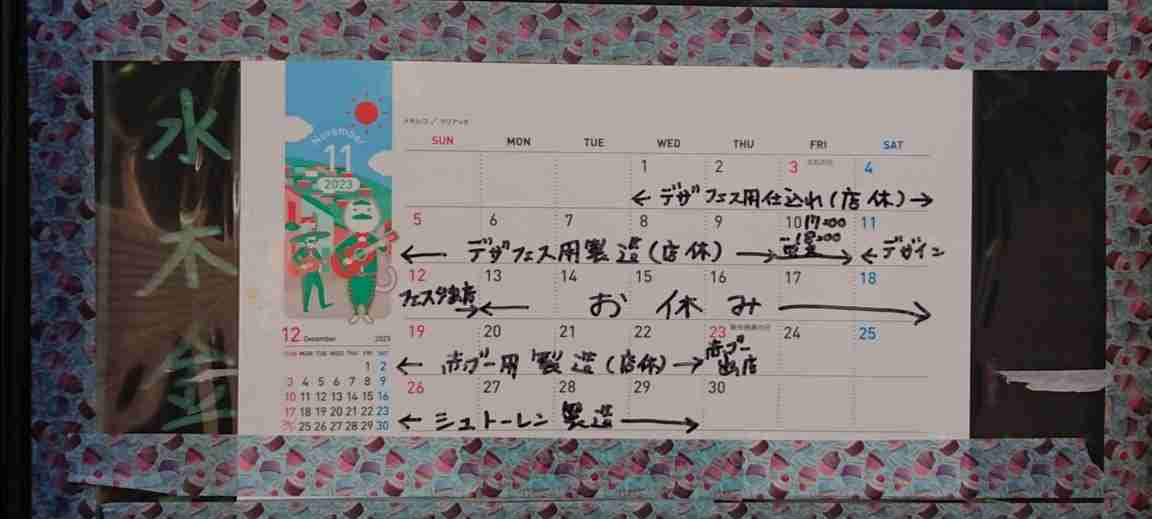 水
木
金
November
11
2023
メキシコ / マリアッチ
SUN MON TUE WED THU FRI SAT
1 2 3 文化の日 4
← デザフェス用仕込れ(店休) →
5 6 7 8 9 10 17:00 11
18:00
← デザフェス用製造(店休) → 営業 → ← デザイン
12 13 14 15 16 17 18
フェスタ出店 → ← お休み →
19 20 21 22 23 勤労感謝の日 24 25
← 赤ブー用製造(店休) → 赤ブー
出店
26 27 28 29 30
← シュトーレン製造 →
12 December 2023
SUN MON TUE WED THU FRI SAT
1 2
3 4 5 6 7 8 9
10 11 12 13 14 15 16
17 18 19 20 21 22 23
24/31 25 26 27 28 29 30